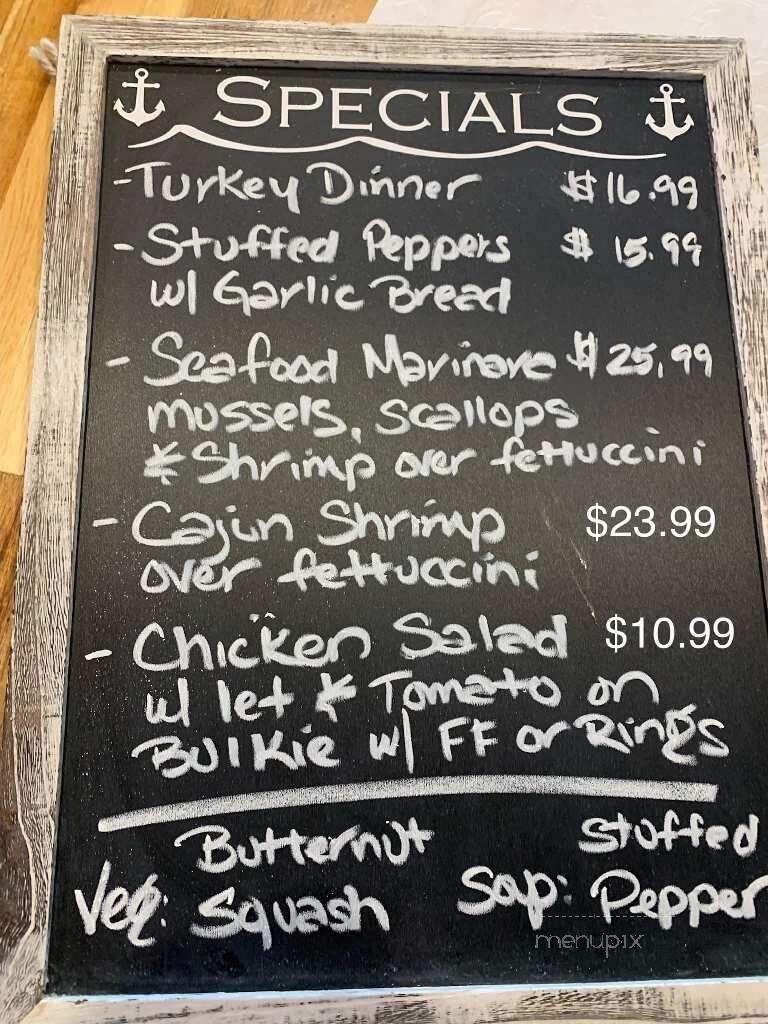 SPECIALS
-Turkey Dinner $16.99
-Stuffed Peppers $15.99
w/ Garlic Bread
- Seafood Marinara $25.99
mussels, scallops
& Shrimp over fettuccini
- Cajun Shrimp $23.99
over fettuccini
- Chicken Salad $10.99
w/ let & Tomato on
Bulkie w/ FF or Rings
Butternut Stuffed
Veg: Squash Soup: Pepper
menupix